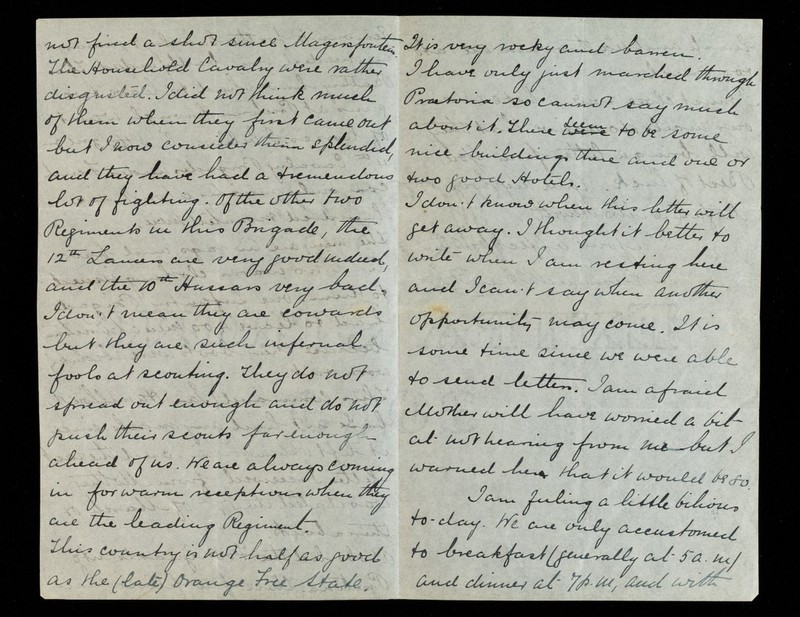 not fired a shot since Magersfontein.
The Household Cavalry were rather
disgusted. I did not think much
of them when they first came out
but I now consider them splendid,
and they have had a tremendous
lot of fighting. Of the other two
Regiments in this Brigade, the
12th Lancers are very good indeed,
and the 10th Hussars very bad.
I don't mean they are cowards
but they are such infernal
fools at scouting. They do not
spread out enough and do not
push their scouts far enough
ahead of us. We are always coming
in for warm receptions when they
are the leading Regiment.
This country is not half as good
as the (late) Orange Free State.
It is very rocky and barren.
I have only just marched through
Praetoria so cannot say much
about it. There seem to be some
nice buildings there and one or
two good Hotels.
I don't know when this letter will
get away. I thought it better to
write when I am resting here
and I can't say when another
opportunity may come. It is
some time since we were able
to send letters. I am afraid
Mother will have worried a bit
at not hearing from me but I
warned her that it would be so.
I am feeling a little bilious
to-day. We are only accustomed
to breakfast (generally at 5 a.m)
and dinner at 7 p.m, and with